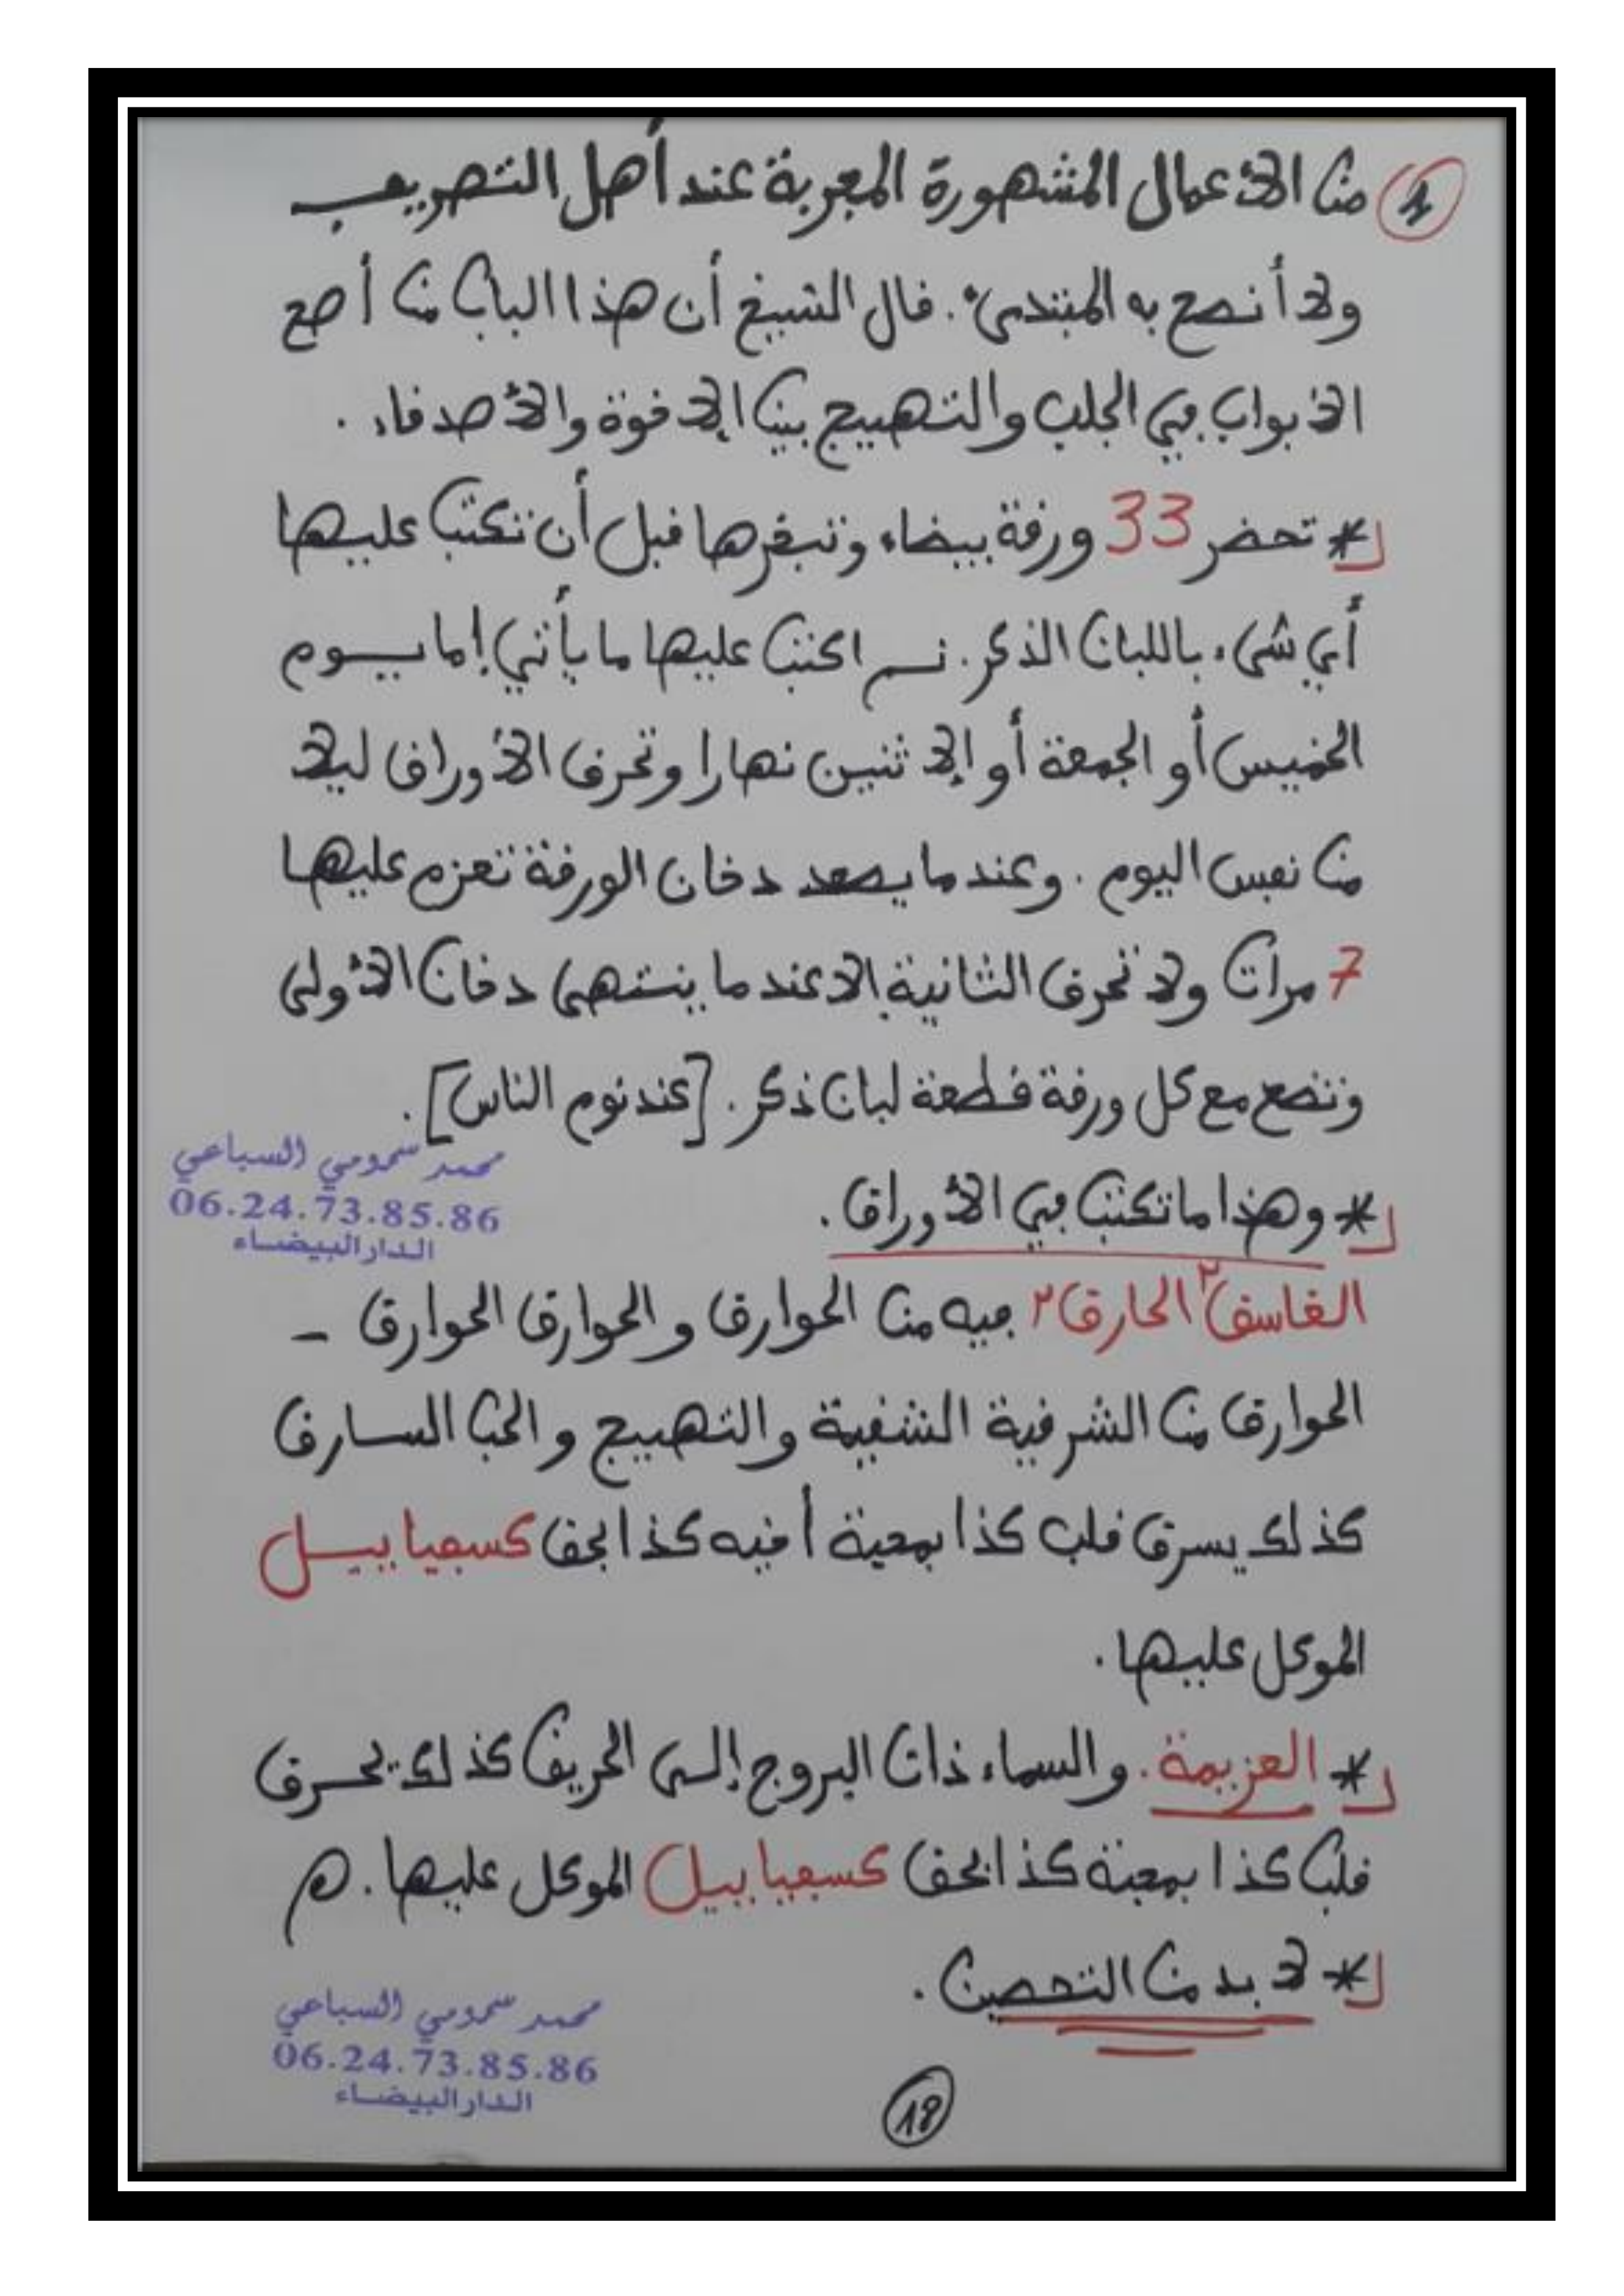 1 من الأعمال المشهورة المجربة عند أهل التصريف
ولا أنصح به المبتدىء. قال الشيخ أن هذا الباب من أصح
الأبواب في الجلب والتهييج بين الإخوة والأصدقاء.
* تحضر 33 ورقة بيضاء وتبخرها قبل أن تكتب عليها
أي شيء باللبان الذكر. ثم اكتب عليها ما يأتي إما يوم
الخميس أو الجمعة أو الإثنين نهارا وتحرق الأوراق ليلا
من نفس اليوم. وعندما يصعد دخان الورقة تعزم عليها
7 مرات ولا تحرق الثانية إلا عندما ينتهي دخان الأولى
وتضع مع كل ورقة قطعة لبان ذكر. [عند نوم الناس].
محمد سمومي السباعي
06.24.73.85.86
الدار البيضاء
* وهذا ما تكتب في الأوراق.
الغاسق ٢ الحارق ٢ فيه من الحوارق والحوارق الحوارق -
الحوارق من الشرقية الشفية والتهييج والحب السارق
كذلك يسرق قلب كذا بمحبة أخيه كذا بحق كسفيابيل
الموكل عليها.
* العزيمة. والسماء ذات البروج إلى الحريق كذلك يحرق
قلب كذا بمحبة كذا بحق كسفيابيل الموكل عليها. هـ
* لا بد من التحصين.
محمد سمومي السباعي
06.24.73.85.86
الدار البيضاء
18